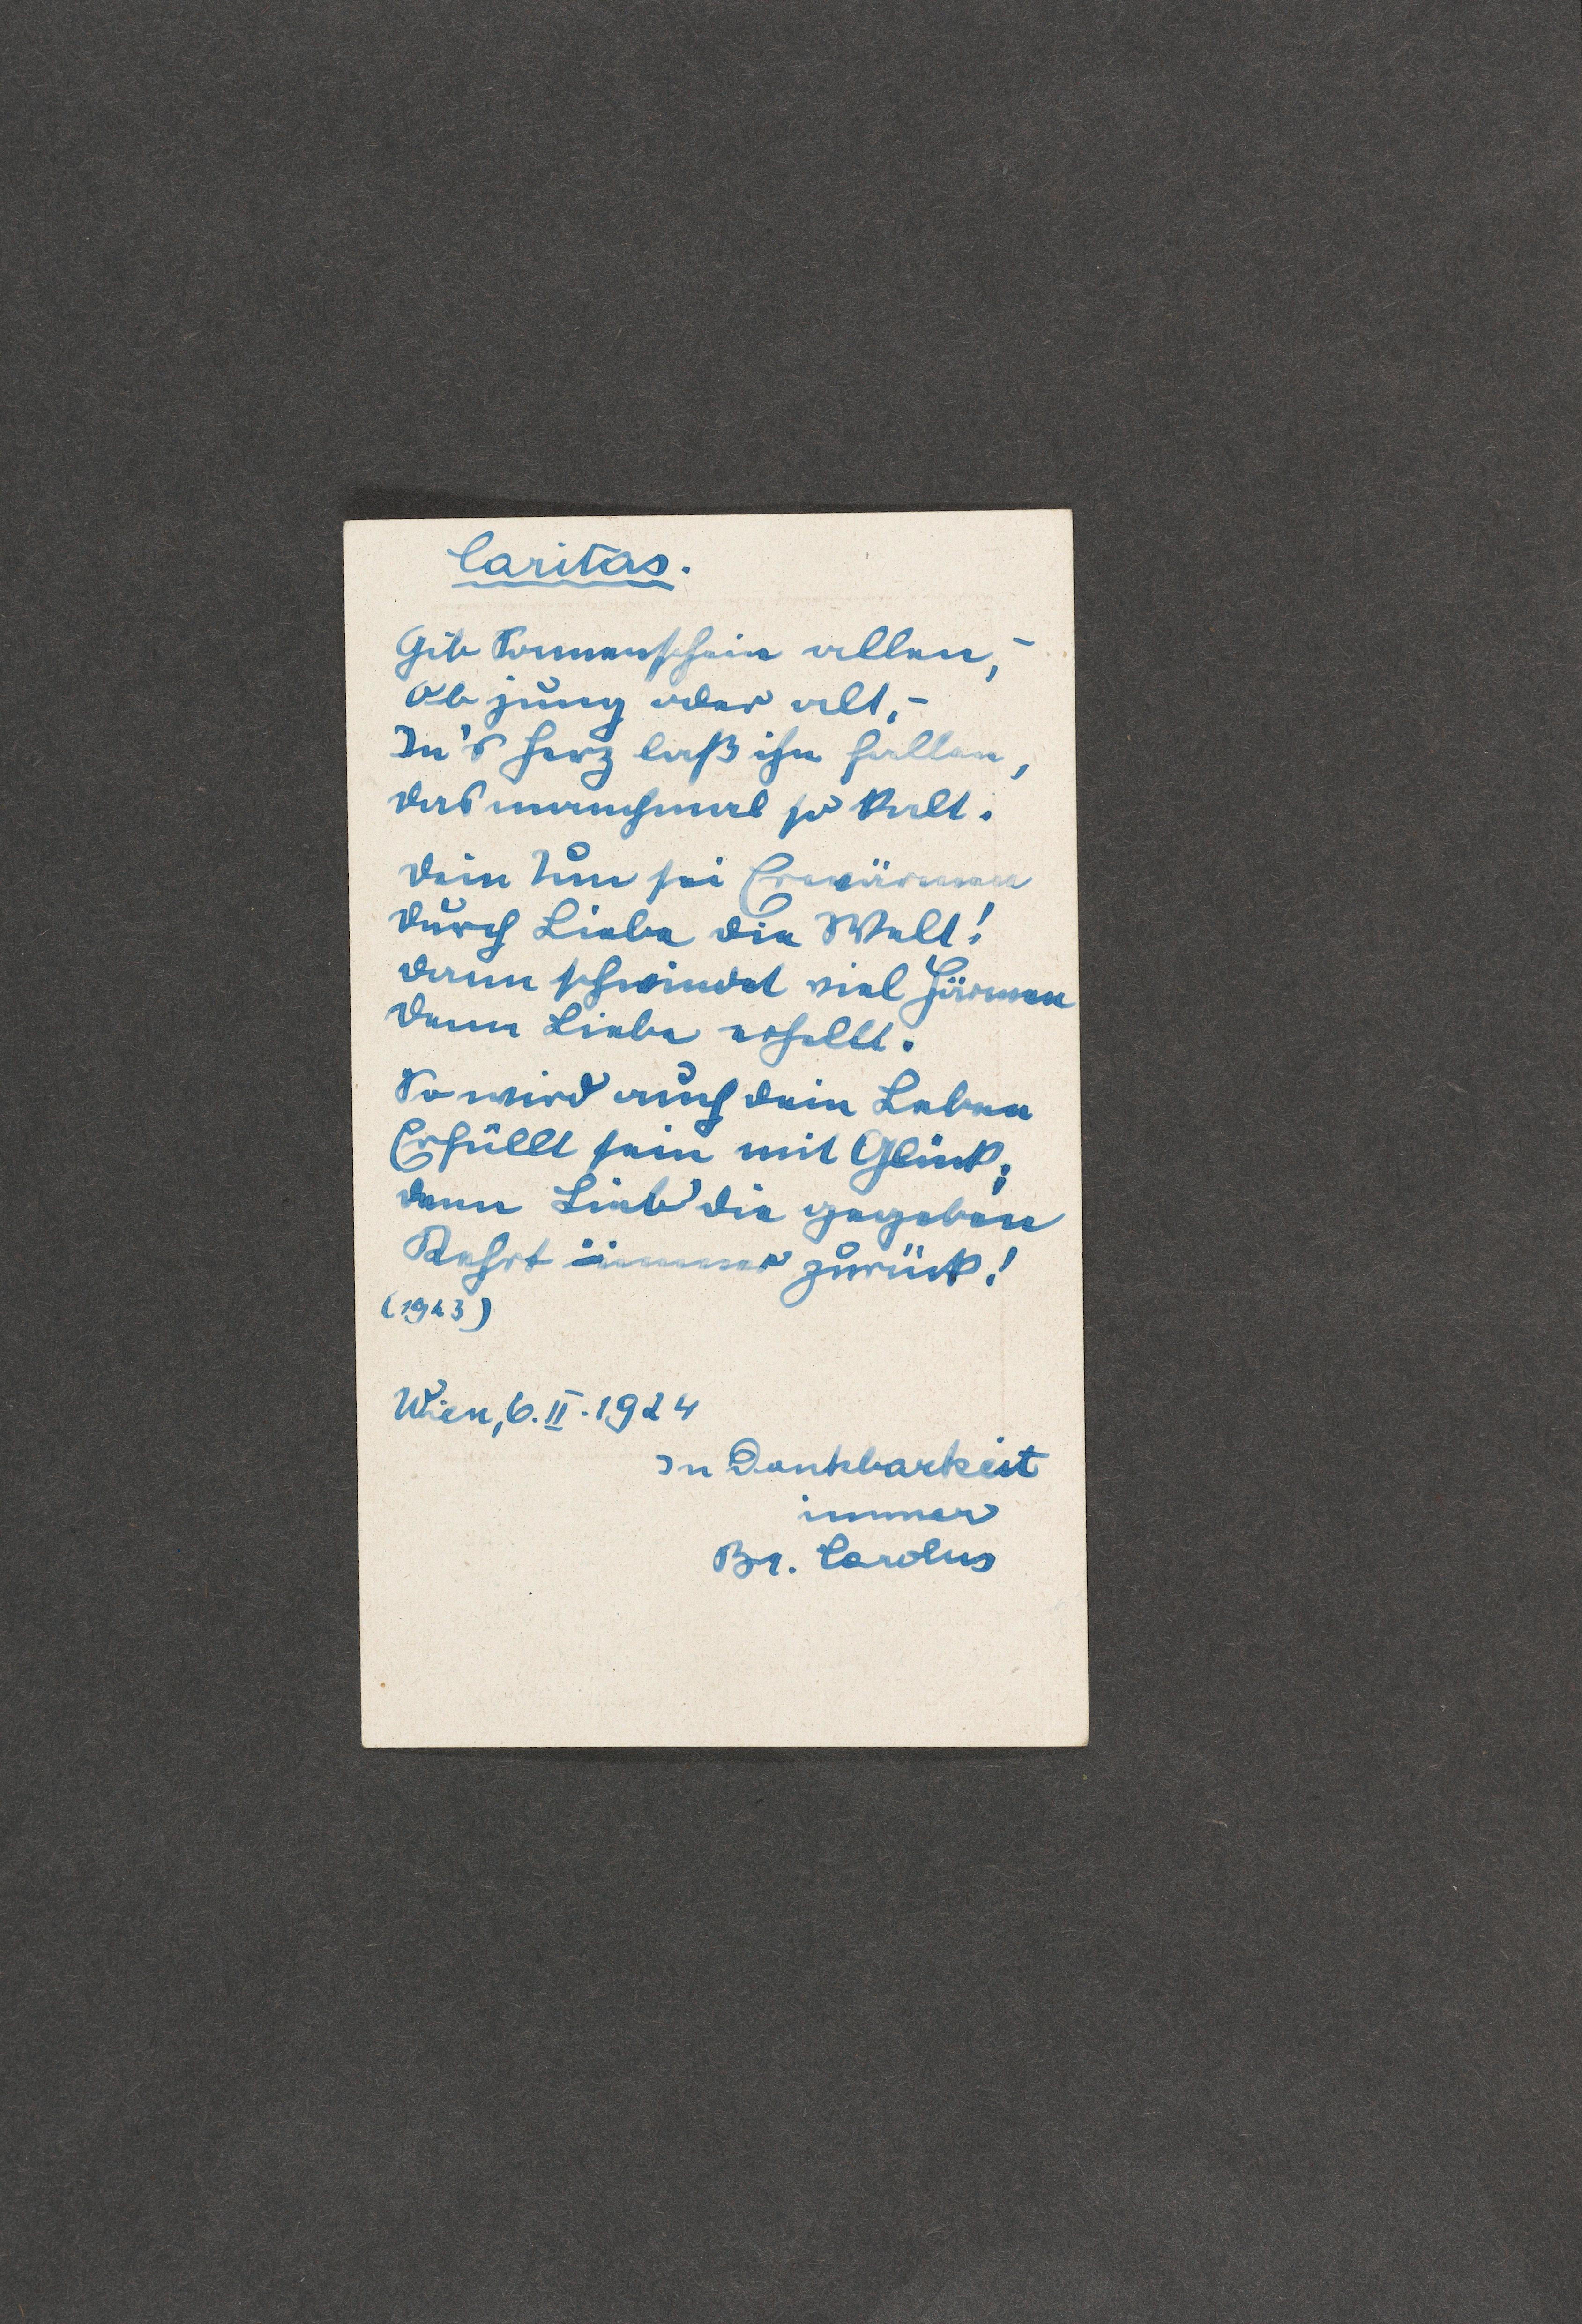 Caritas.
Gib Sonnenschein allen,-
Ob jung oder alt,-
In's Herz laß ihn fallen,
das manchmal so kalt.
Dein Tun sei Erwärmen
durch Liebe die Welt!
dann schwindet viel Härmen
denn Liebe erhellt.
So wird auch dein Leben
Erfüllt sein mit Glück;
denn Lieb' die gegeben
Kehrt immer zurück!
(1923)
Wien, 6. II. 1924
In Dankbarkeit
immer
Br. Carolus